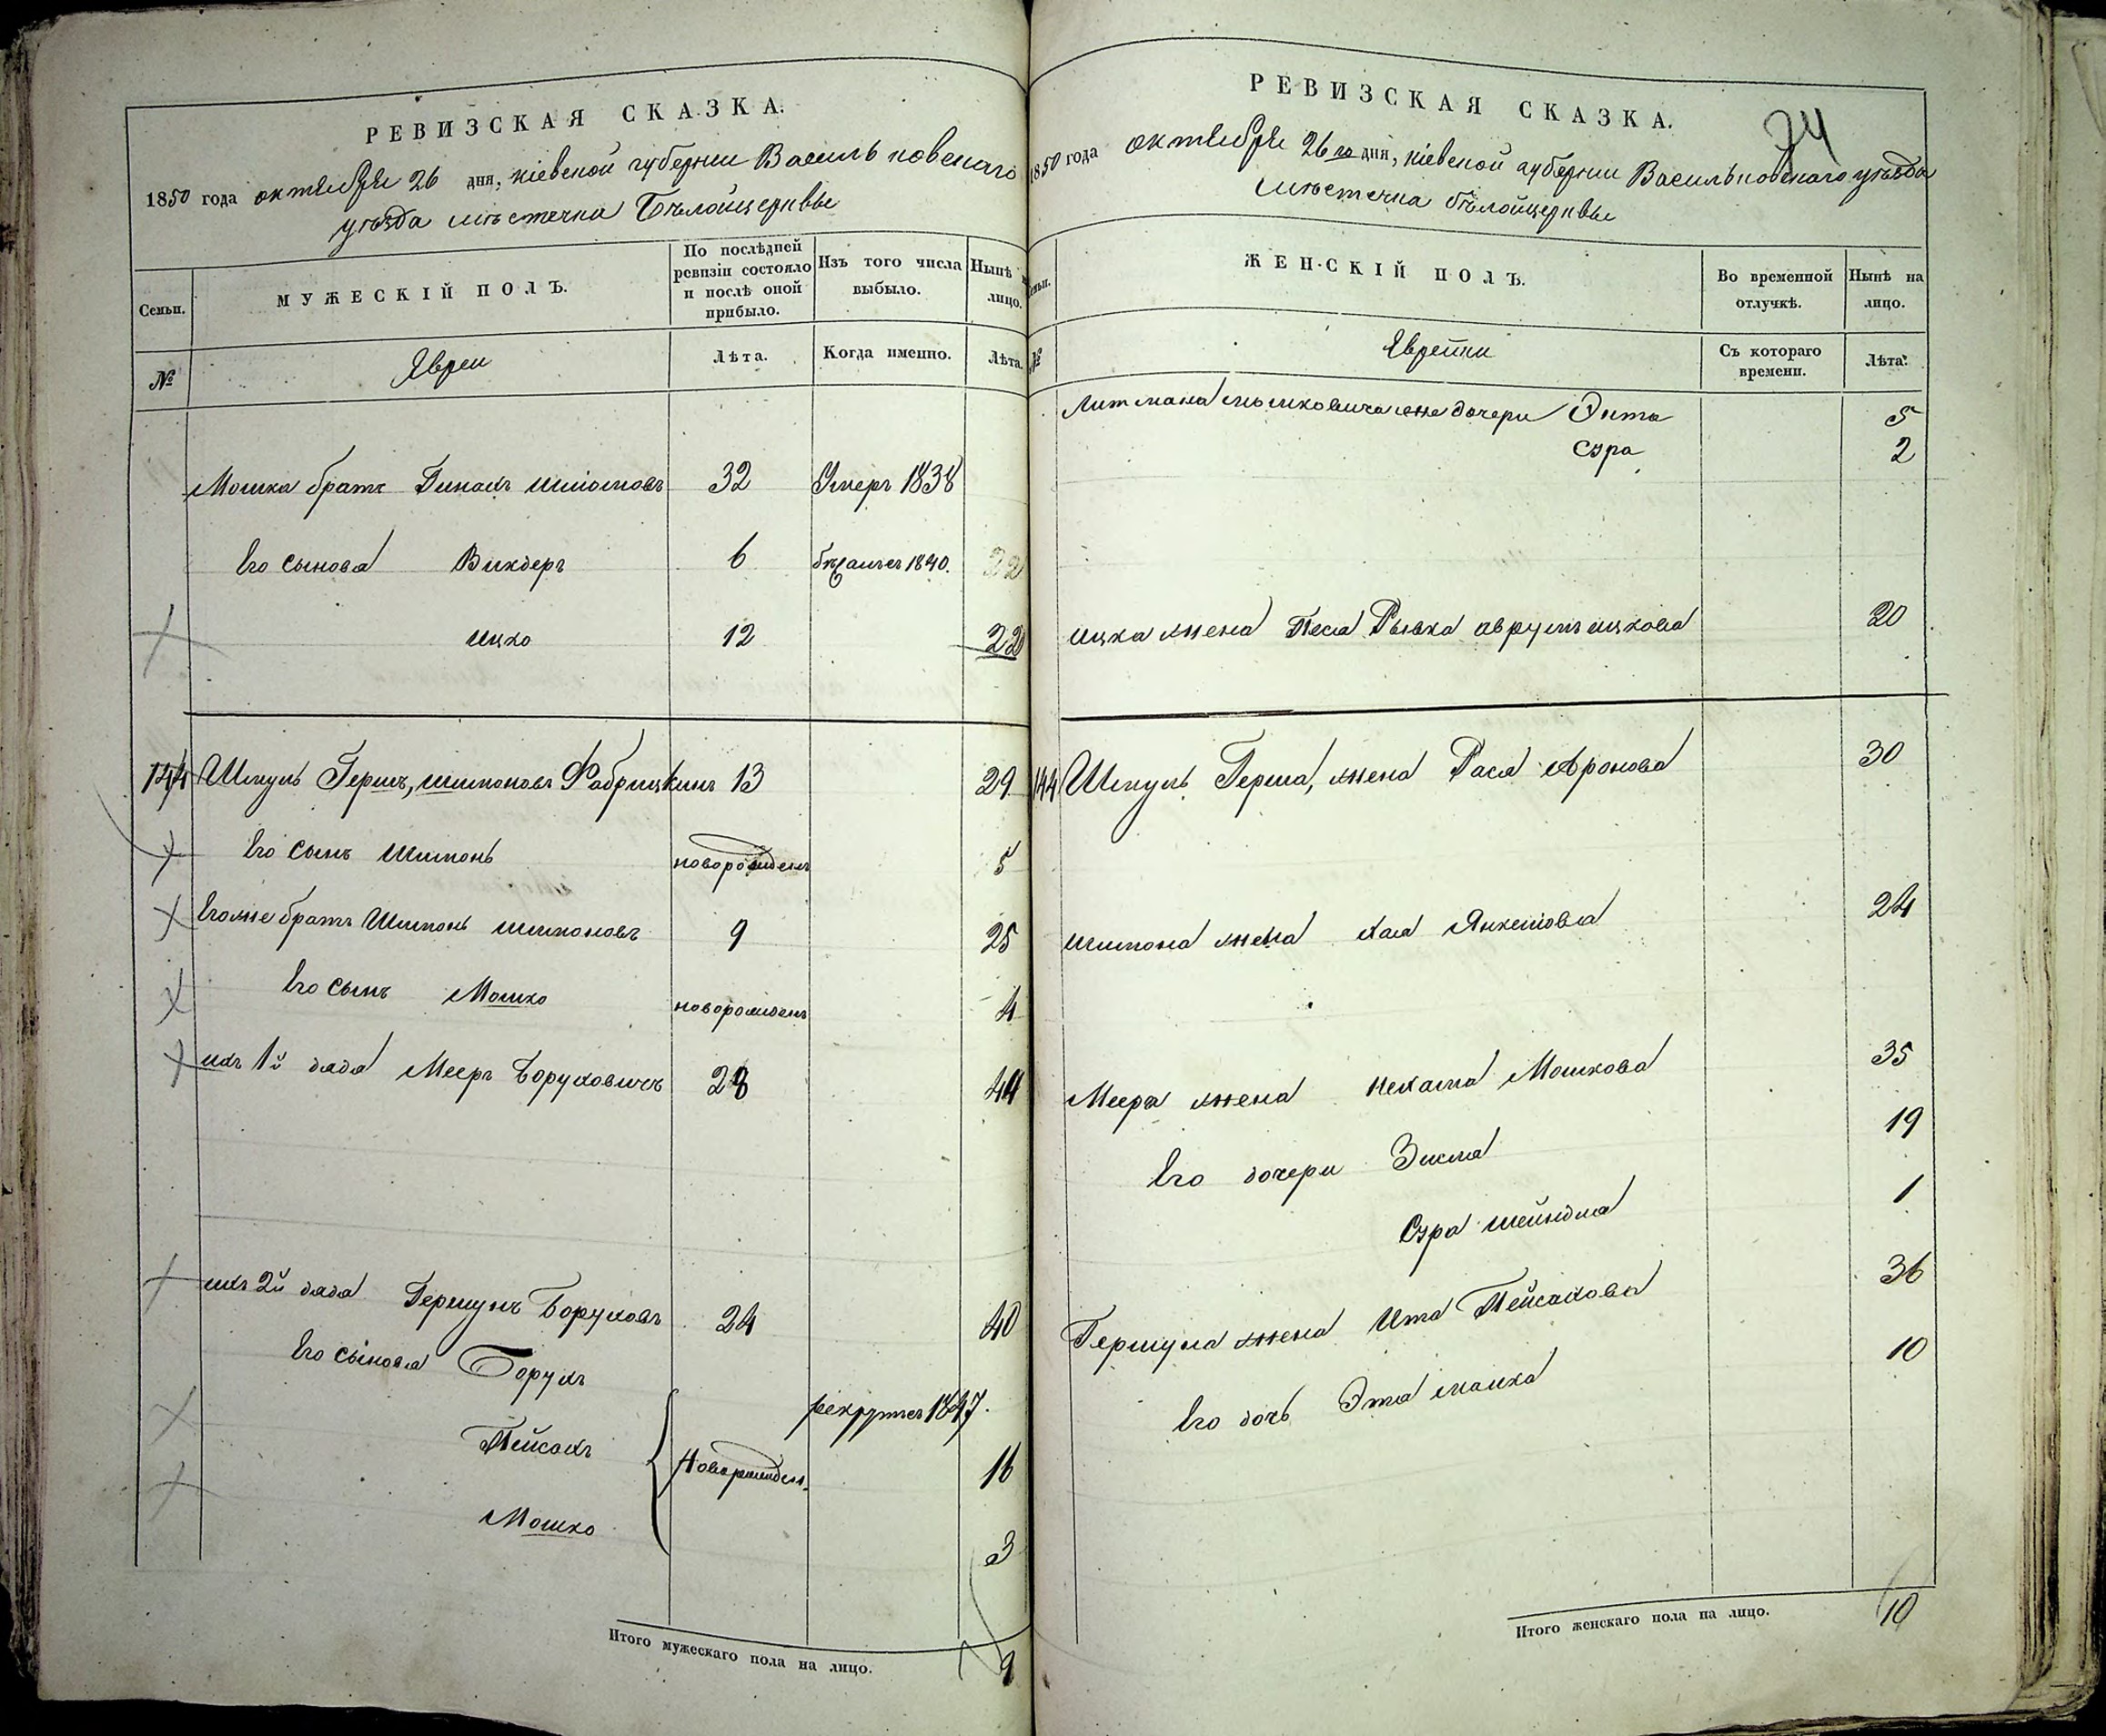 РЕВИЗСКАЯ СКАЗКА.
1850 года октября 26 дня, кіевской губерніи Васильковскаго
уѣзда мѣстечка Бѣлойцерквы
Семьи.
МУЖЕСКІЙ ПОЛЪ.
По послѣдней ревизіи состояло и послѣ оной прибыло.
Изъ того числа выбыло.
Нынѣ на лицо.
№
Евреи
Лѣта.
Когда именно.
Лѣта.
Мошка братъ Пинахъ Шимоновъ 32 Умеръ 1838
Его сыновья 6 1840.
Ицко 12 22
144 Шмуль Гершъ, шимоновъ Фабрицкинъ 13 29
Его сынъ Шимонъ новорожденъ 5
Егоже братъ Шимонъ шимоновъ 9 25
Его сынъ Мошко новорожденъ 4
ихъ 1й дядя Мееръ Боруховичъ 28 44
ихъ 2й дядя Гершунъ Боруховъ 24 40
Его сыновья Борухъ рекрутъ 1847.
Пейсахъ новорожден. 16
Мошко 3
Итого мужескаго пола на лицо. 9
РЕВИЗСКАЯ СКАЗКА.
34
1850 года октября 26 го дня, кіевской губерніи Васильковскаго уѣзда
мѣстечка бѣлойцерквы
Семьи.
ЖЕНСКІЙ ПОЛЪ.
Во временной отлучкѣ.
Нынѣ на лицо.
№
Еврейки
Съ котораго времени.
Лѣта.
Литмана мошковича дочери Энта 5
Сура 2
Ицка жена Песя Рывка аврумъ ицкова 20
144 Шмуль Герша, жена Рася Аронова 30
шимона жена Хая Янкелева 24
Меера жена Нехама Мошкова 35
Его дочери Зисля 19
Сура шейндля 1
Гершуна жена Ита Пейсахова 36
Его дочь Эта малка 10
Итого женскаго пола на лицо. 10